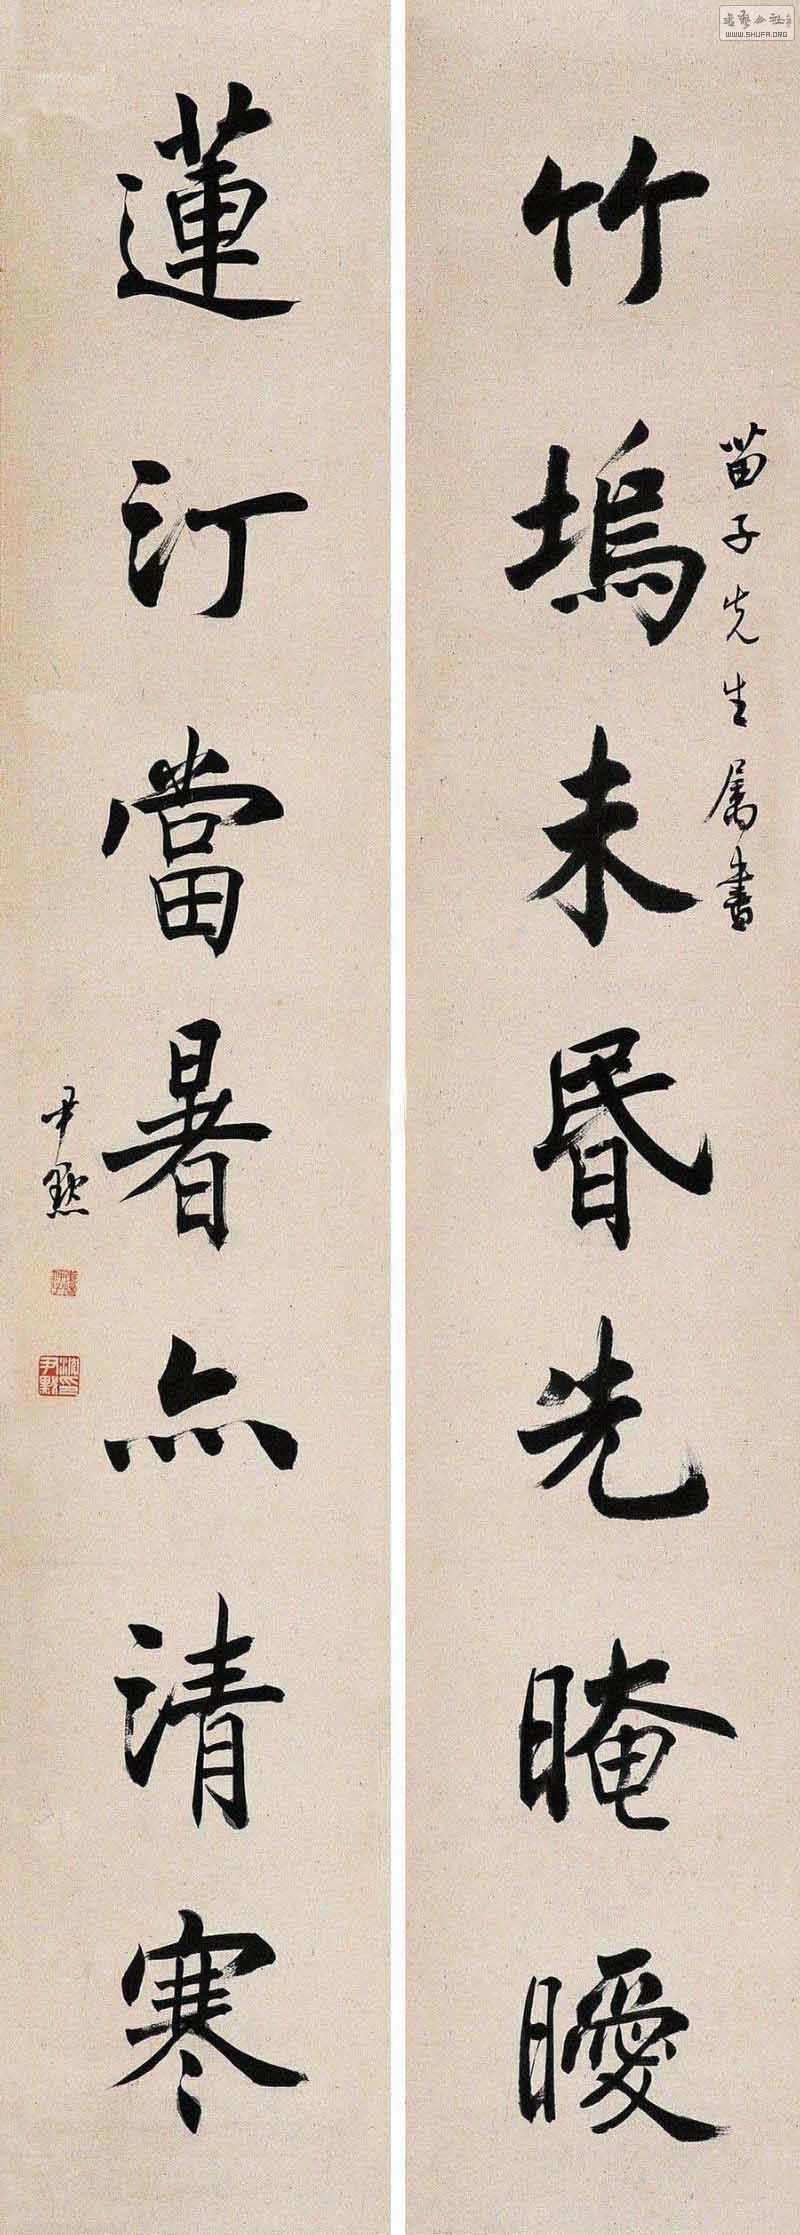 竹塢未昬先晻曖
苗子先生属書
蓮汀當暑亦清寒
尹默
沈尹默印
書藝公社
WWW.SHUFA.ORG